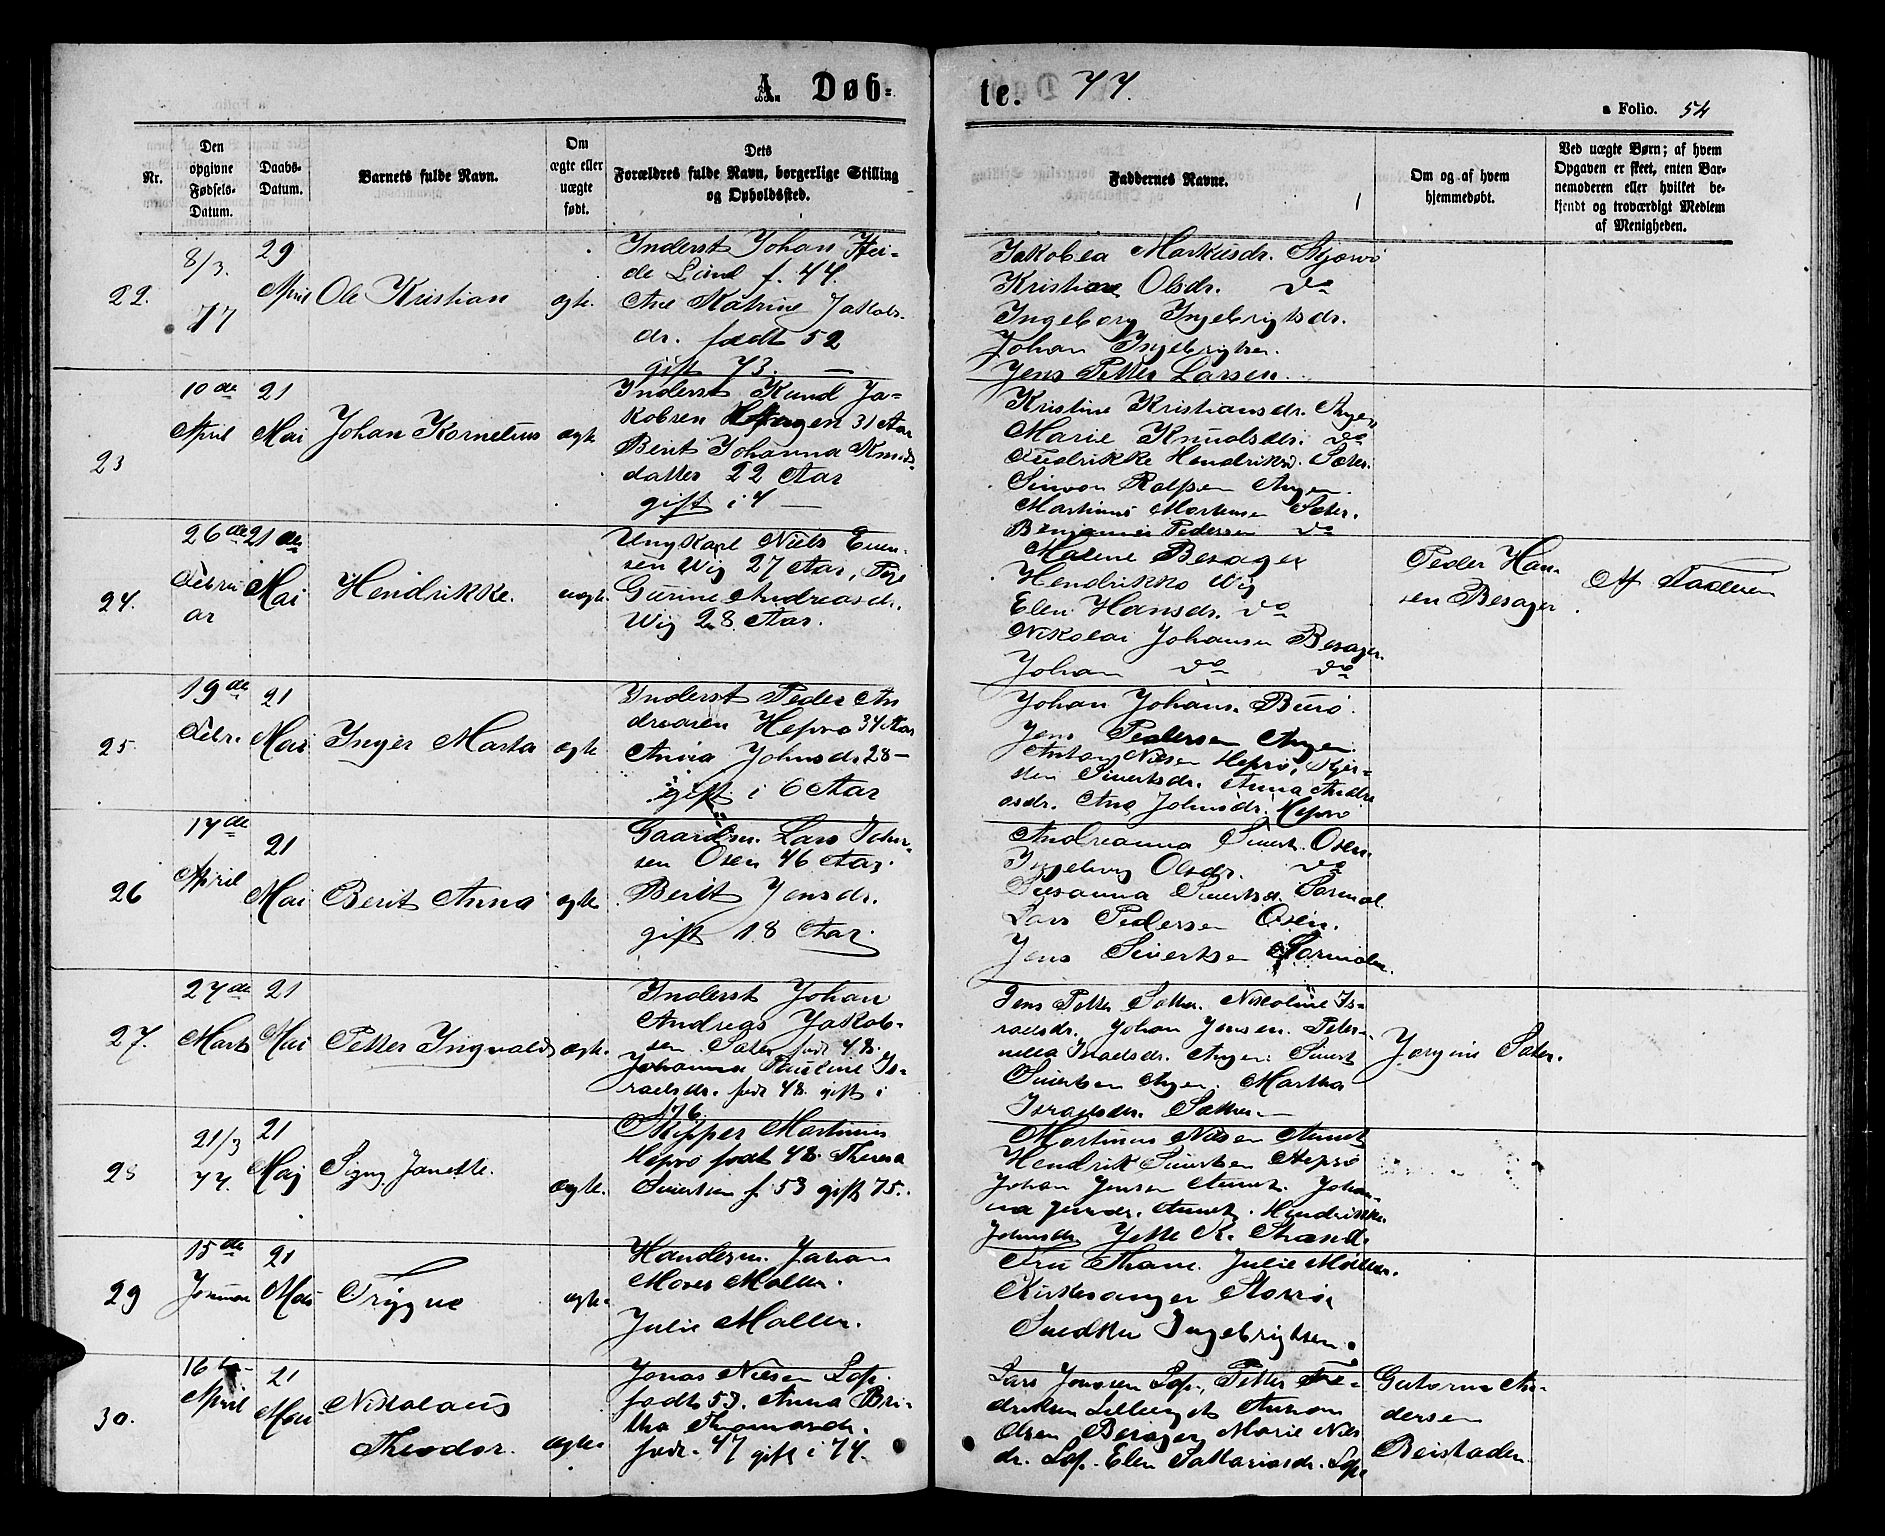 A. Døb-
te. 77.
a Folio. 54
Nr.
Den opgivne Fødsels-Datum.
Daabs-Datum.
Barnets fulde Navn.
Om ægte eller uægte født.
Dets Forældres fulde Navn, borgerlige Stilling og Opholdssted.
Faddernes Navne.
Om og af hvem hjemmedøbt.
Ved uægte Børn; af hvem Opgaven er skeet, enten Barnemoderen eller hvilket bekjendt og troværdigt Medlem af Menigheden.
22.
8/3.
77
29
April
Ole Kristian
ægte.
Inderst Johan Hei-
de Lund f. 44.
Ane Katrine Jakobs-
dr. født 52
gift 73. —
Jakobea Markusdr.
Kristiane Olsdr. do
Ingeborg Ingebrigtsdr.
Johan Ingebrigtsen.
Jens Petter Larsen.
23
10de
April
21
Mai
Johan Kornelius
ægte
Inderst Knud Ja-
kobsen 31 Aar
Berit Johanna Knuds-
datter 22 Aar
gift i 4 —
Kristine Kristiansdr. Angen
Marie Knudsdr. do
Fredrikke Hendriksd. Sæter.
Simon Rolfsen Angen.
Martinus Mortensen Sæter.
Benjamin Pedersen do
24.
26de
Febru
ar
21de
Mai
Hendrikke.
uægte.
Ungkarl Niels Even-
sen Wig 27 Aar, Pige
Gurine Andreasdr.
Wig 28 Aar.
Malene Besager
Hendrikke Wig
Elen Hansdr. do
Nikolai Johansen Besager.
Johan do do
Peder Han-
sen Besager
Af Faderen
25.
19de
Febr.
21
Mai
Inger Marta
ægte
Inderst Peder An
dreasen Hepsø 34 Aar
Anna Johnsdr. 28 —
gift i 6 Aar
Johan Johans. Burø.
Jens Pedersen Angen.
Anton Nilsen Hepsø, Kjer-
sten Sivertsdr. Anna Andre
asdr. Ane Johnsdr. Hepsø
26
17de
April
21
Mai
Berit Anna
ægte
Gaardm. Lars Peder-
sen Osen 46 Aar
Berit Jensdr.
gift 18 Aar.
Andreanna Sivert. Osen.
Ingeborg Olsdr. do
Susanna Sivertsd. Sørmel.
Lars Pedersen Osen.
Jens Sivertsen
27.
27de
Marts
21
Mai
Petter Ingvald
ægte.
Inderst Johan
Andreas Jakob-
sen Sæter født 48.
Johanna Pauline Is-
raelsdr. født 48. gift i
76.
Jens Petter Sæther. Nikoline Is-
raelsdr. Johan Jensen. Peter-
nella Israelsdr. Angen. Sivert
Sivertsen Angen. Martha
Israelsdr. Sæther. —
Jørgine Sæter.
28
21/3
77.
21
Maj
Signy Janette.
ægte.
Skipper Martinus
Hepsø født 48. Theresa
Sivertsen f. 53 gift 75.
Martinus Nilsen Aunet
Hendrik Sivertsen Hepsø
Johan Jensen Aunet. Johan-
na Jensdr. Aunet. Hendrikke
Johnsdr. Jette K. Strand.
29
15de
Januar
21
Mai
Trygve
ægte.
Handelsm. Johan
Møller.
Julie Møller.
Fru Tham. Julie Møller.
Kirkesanger Størrø
Snedker Ingebrigtsen.
30.
16de
April
21
Mai
Nikolaus
Theodor.
ægte.
Jonas Nilsen Sop.
født 53. Anna Bri-
tha Thomasdr.
født. 47 gift i 74.
Lars Jonssen Sop., Petter Fre-
driksen Anton
Olsen Besager, Marie Nils
dr. Sop. Elen Sakariasdr. Sop.
Gutorm An-
dersen
Beistaden